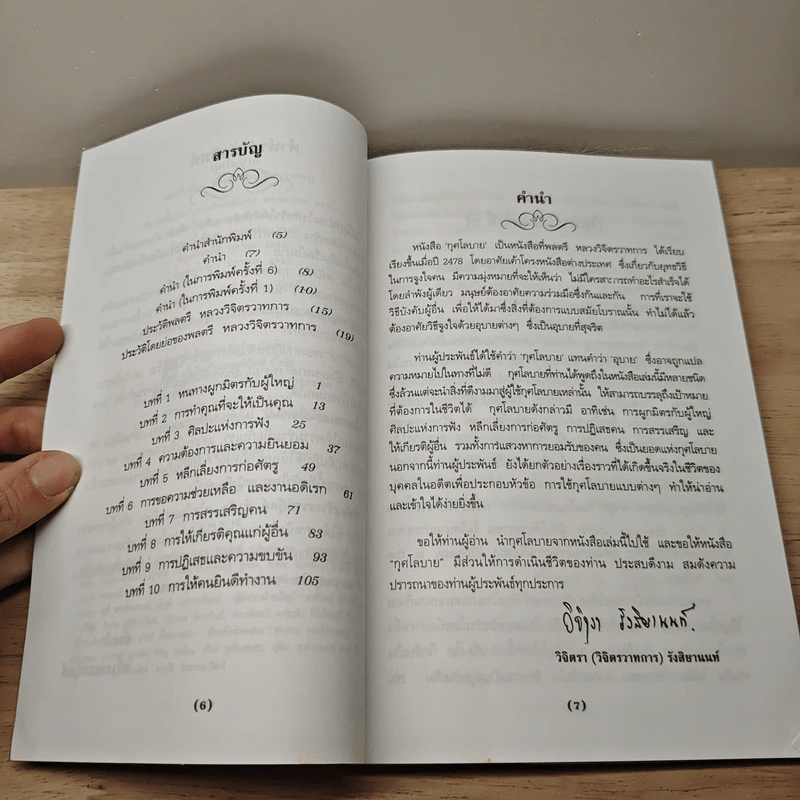 สารบัญ
คำนำสำนักพิมพ์ (5)
คำนำ (7)
คำนำ (ในการพิมพ์ครั้งที่ 6) (8)
คำนำ (ในการพิมพ์ครั้งที่ 1) (10)
ประวัติพลตรี หลวงวิจิตรวาทการ (15)
ประวัติโดยย่อของพลตรี หลวงวิจิตรวาทการ (19)
บทที่ 1 หนทางผูกมิตรกับผู้ใหญ่ 1
บทที่ 2 การทำคุณที่จะให้เป็นคุณ 13
บทที่ 3 ศิลปะแห่งการฟัง 25
บทที่ 4 ความต้องการและความยินยอม 37
บทที่ 5 หลีกเลี่ยงการก่อศัตรู 49
บทที่ 6 การขอความช่วยเหลือ และงานอดิเรก 61
บทที่ 7 การสรรเสริญคน 71
บทที่ 8 การให้เกียรติคุณแก่ผู้อื่น 83
บทที่ 9 การปฏิเสธและความขบขัน 93
บทที่ 10 การให้คนยินดีทำงาน 105
(6)
คำนำ
หนังสือ 'กุศโลบาย' เป็นหนังสือที่พลตรี หลวงวิจิตรวาทการ ได้เรียบ
เรียงขึ้นเมื่อปี 2478 โดยอาศัยเค้าโครงหนังสือต่างประเทศ ซึ่งเกี่ยวกับยุทธวิธี
ในการจูงใจคน มีความมุ่งหมายที่จะให้เห็นว่า ไม่มีใครสามารถทำอะไรสำเร็จได้
โดยลำพังผู้เดียว มนุษย์ต้องอาศัยความร่วมมือซึ่งกันและกัน การที่เราจะใช้
วิธีบังคับผู้อื่น เพื่อให้ได้มาซึ่งสิ่งที่ต้องการแบบสมัยโบราณนั้น ทำไม่ได้แล้ว
ต้องอาศัยวิธีจูงใจด้วยอุบายต่างๆ ซึ่งเป็นอุบายที่สุจริต
ท่านผู้ประพันธ์ได้ใช้คำว่า 'กุศโลบาย' แทนคำว่า 'อุบาย' ซึ่งอาจถูกแปล
ความหมายไปในทางที่ไม่ดี กุศโลบายที่ท่านได้พูดถึงในหนังสือเล่มนี้มีหลายชนิด
ซึ่งล้วนแต่จะนำสิ่งที่ดีงามมาสู่ผู้ใช้กุศโลบายเหล่านั้น ให้สามารถบรรลุถึงเป้าหมาย
ที่ต้องการในชีวิตได้ กุศโลบายดังกล่าวมี อาทิเช่น การผูกมิตรกับผู้ใหญ่
ศิลปะแห่งการฟัง หลีกเลี่ยงการก่อศัตรู การปฏิเสธคน การสรรเสริญ และ
ให้เกียรติผู้อื่น รวมทั้งการแสวงหาการยอมรับของคน ซึ่งเป็นยอดแห่งกุศโลบาย
นอกจากนี้ท่านผู้ประพันธ์ ยังได้ยกตัวอย่างเรื่องราวที่ได้เกิดขึ้นจริงในชีวิตของ
บุคคลในอดีตเพื่อประกอบหัวข้อ การใช้กุศโลบายแบบต่างๆ ทำให้น่าอ่าน
และเข้าใจได้ง่ายยิ่งขึ้น
ขอให้ท่านผู้อ่าน นำกุศโลบายจากหนังสือเล่มนี้ไปใช้ และขอให้หนังสือ
"กุศโลบาย" มีส่วนให้การดำเนินชีวิตของท่าน ประสบดีงาม สมดังความ
ปรารถนาของท่านผู้ประพันธ์ทุกประการ
วิจิตรา รังสิยานนท์.
วิจิตรา (วิจิตรวาทการ) รังสิยานนท์
(7)